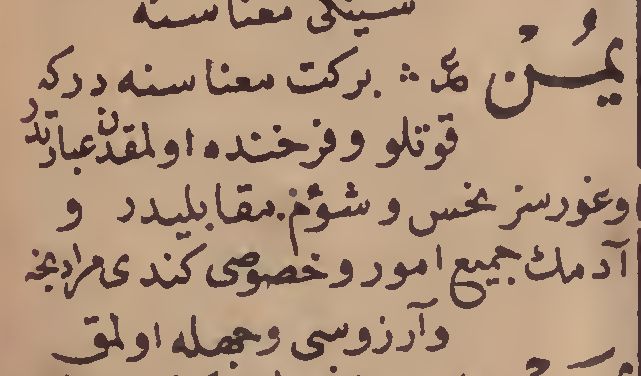 سينكى معناسنه
يُمْنْ عر بركت معناسنه در كه
قوتلو و فرخنده اولمقدن عبارتدر
وغورسز نحس و شؤم مقابليدر و
آدمك جميع امور و خصوصى كندى مراد نجه
و آرزوسى وجهله اولمق